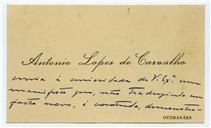 Antonio Lopes de Carvalho
envia à curiosidade de V. Exª. um
manifesto que, não traduzindo um
facto novo, é contudo, demonstra-
GUIMARÃES